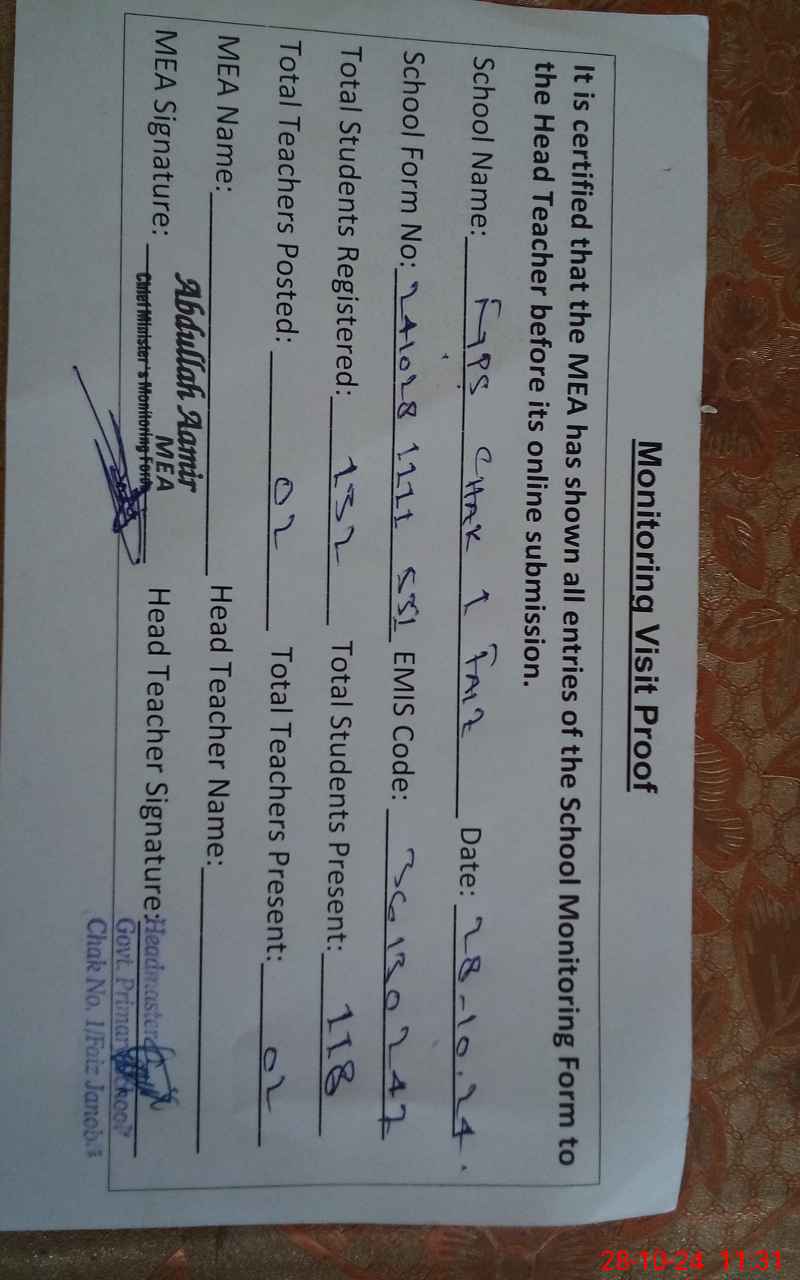 Monitoring Visit Proof
It is certified that the MEA has shown all entries of the School Monitoring Form to
the Head Teacher before its online submission.
School Name: GPS CHAK 1 FAIZ Date: 28-10.24.
School Form No: 241028 1111 531 EMIS Code: 36130247
Total Students Registered: 132 Total Students Present: 118
Total Teachers Posted: 02 Total Teachers Present: 02
MEA Name: Head Teacher Name:
Abdullah Aamir
MEA
Chief Minister's Monitoring Force
MEA Signature: Head Teacher Signature:
Headmaster
Govt. Primary School
Chak No. 1/Faiz Janobi
28-10-24 11:31